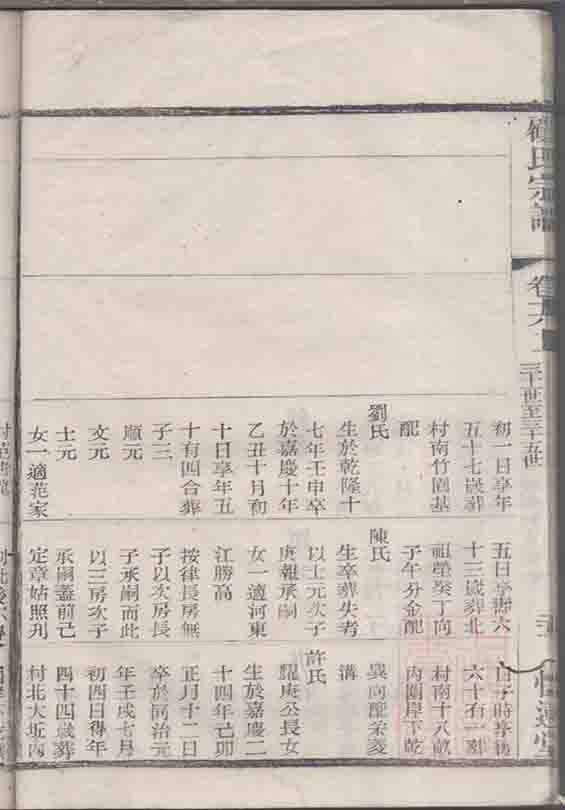 氏宗譜
卷十六上
初一日享年
五十七歲葬
村南竹園基
配
劉氏
生於乾隆十
七年壬申卒
於嘉慶十年
乙丑十月初
十日享年五
十有四合葬
子三
順元
文元
士元
女一適范家
五日享壽六
十三歲葬北
祖塋癸丁向
子午分金配
陳氏
生卒葬失考
以士元次子
庚報承嗣
女一適河東
江勝高
按律長房無
子以次房長
子承嗣而此
以三房次子
承嗣蓋前已
定章姑照刋
日子時享壽
六十有一葬
村南十八畝
內圍岸下乾
巽向配茶菱
溝
許氏
耀庚公長女
生於嘉慶二
十四年己卯
正月十二日
卒於同治元
年壬戌七月
初四日得年
四十四歲葬
村北大坵內